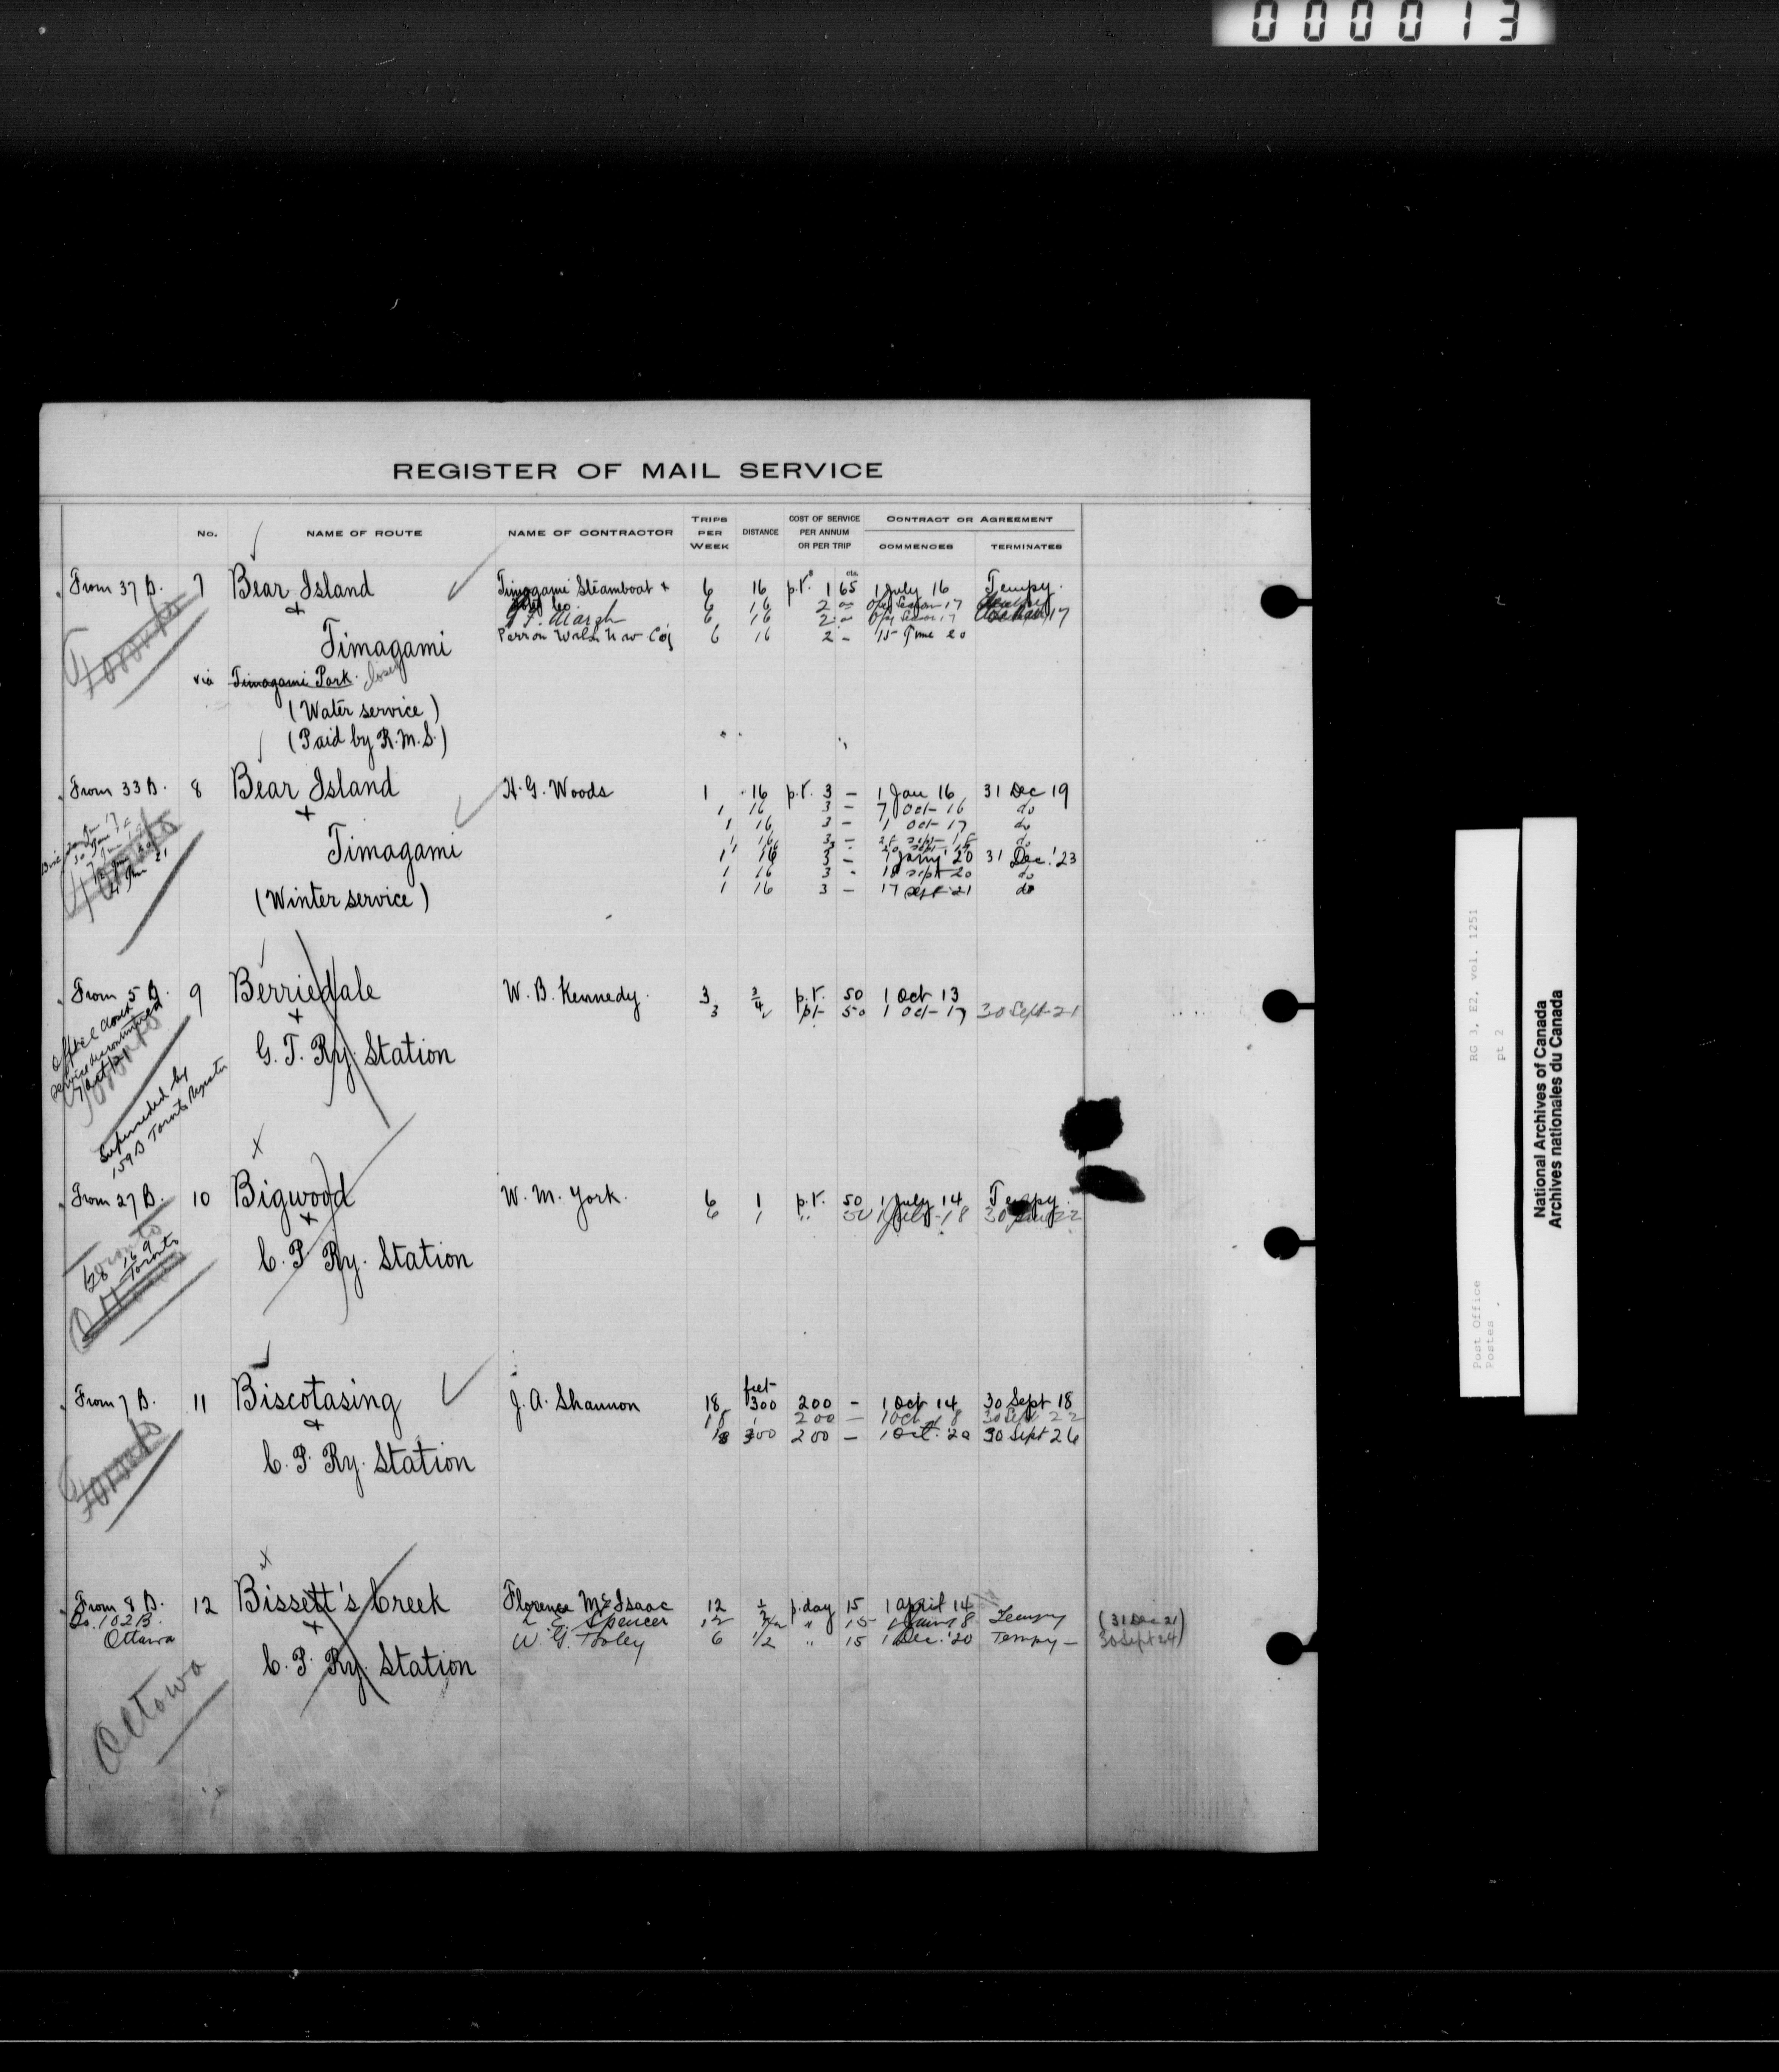 000013
REGISTER OF MAIL SERVICE
No. NAME OF ROUTE NAME OF CONTRACTOR TRIPS PER WEEK DISTANCE COST OF SERVICE PER ANNUM OR PER TRIP CONTRACT OR AGREEMENT
COMMENCES TERMINATES
From 37 B. 7 Bear Island Timagami Steamboat + 6 16 p.r. 1 65 1 July 16 Tempy.
6 16 2 17
+ 6 16 2 17 17
Timagami 6 16 2 - 15 June 20
via Timagami Park. closed
(Water service)
(Paid by R.M.S.)
From 33 B. 8 Bear Island H. G. Woods 1 16 p.r. 3 - 1 Jan 16 31 Dec 19
+ 1 16 3 - 7 Oct 16 do
1 16 3 - 1 Oct 17 do
Timagami 1 16 3 - do
1 16 3 - 1 Jany '20 31 Dec. '23
1 16 3 - 18 Sept 20 do
(Winter service) 1 16 3 - 17 Sept 21 do
From 5 B. 9 Berriedale W. B. Kennedy. 3 3/4 p.r. 50 1 Oct 13
+ 3 50 1 Oct 17 30 Sept 21
G. T. Ry. Station
Office closed
Service discontinued
Superseded by
159 B Toronto Register
From 27 B. 10 Bigwood W. M. York. 6 1 p.r. 50 1 July 14 Tempy.
+ 6 1 " 50 1 July 18 30 22
C. P. Ry. Station
Toronto
From 7 B. 11 Biscotasing J. A. Shannon 18 feet 300 200 - 1 Oct 14 30 Sept 18
+ 18 200 - 1 Oct 18 30 Sept 22
18 300 200 - 1 Oct. '22 30 Sept 26
C. P. Ry. Station
From 8 B. 12 Bissett's Creek Florence McIsaac 12 1/2 p.day 15 1 April 14
Do. 102 B. + Spencer 12 " 15 18 Tempy (31 Dec 21)
Ottawa 6 1/2 " 15 1 Dec. '20 Tempy - 30 Sept 24)
C. P. Ry. Station
Ottawa
RG 3, E2, vol. 1251
pt 2
Post Office
Postes
National Archives of Canada
Archives nationales du Canada